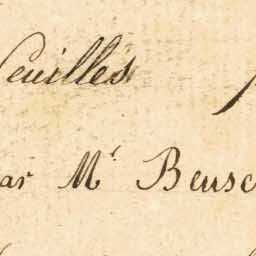 feuilles
par Mr Beuse